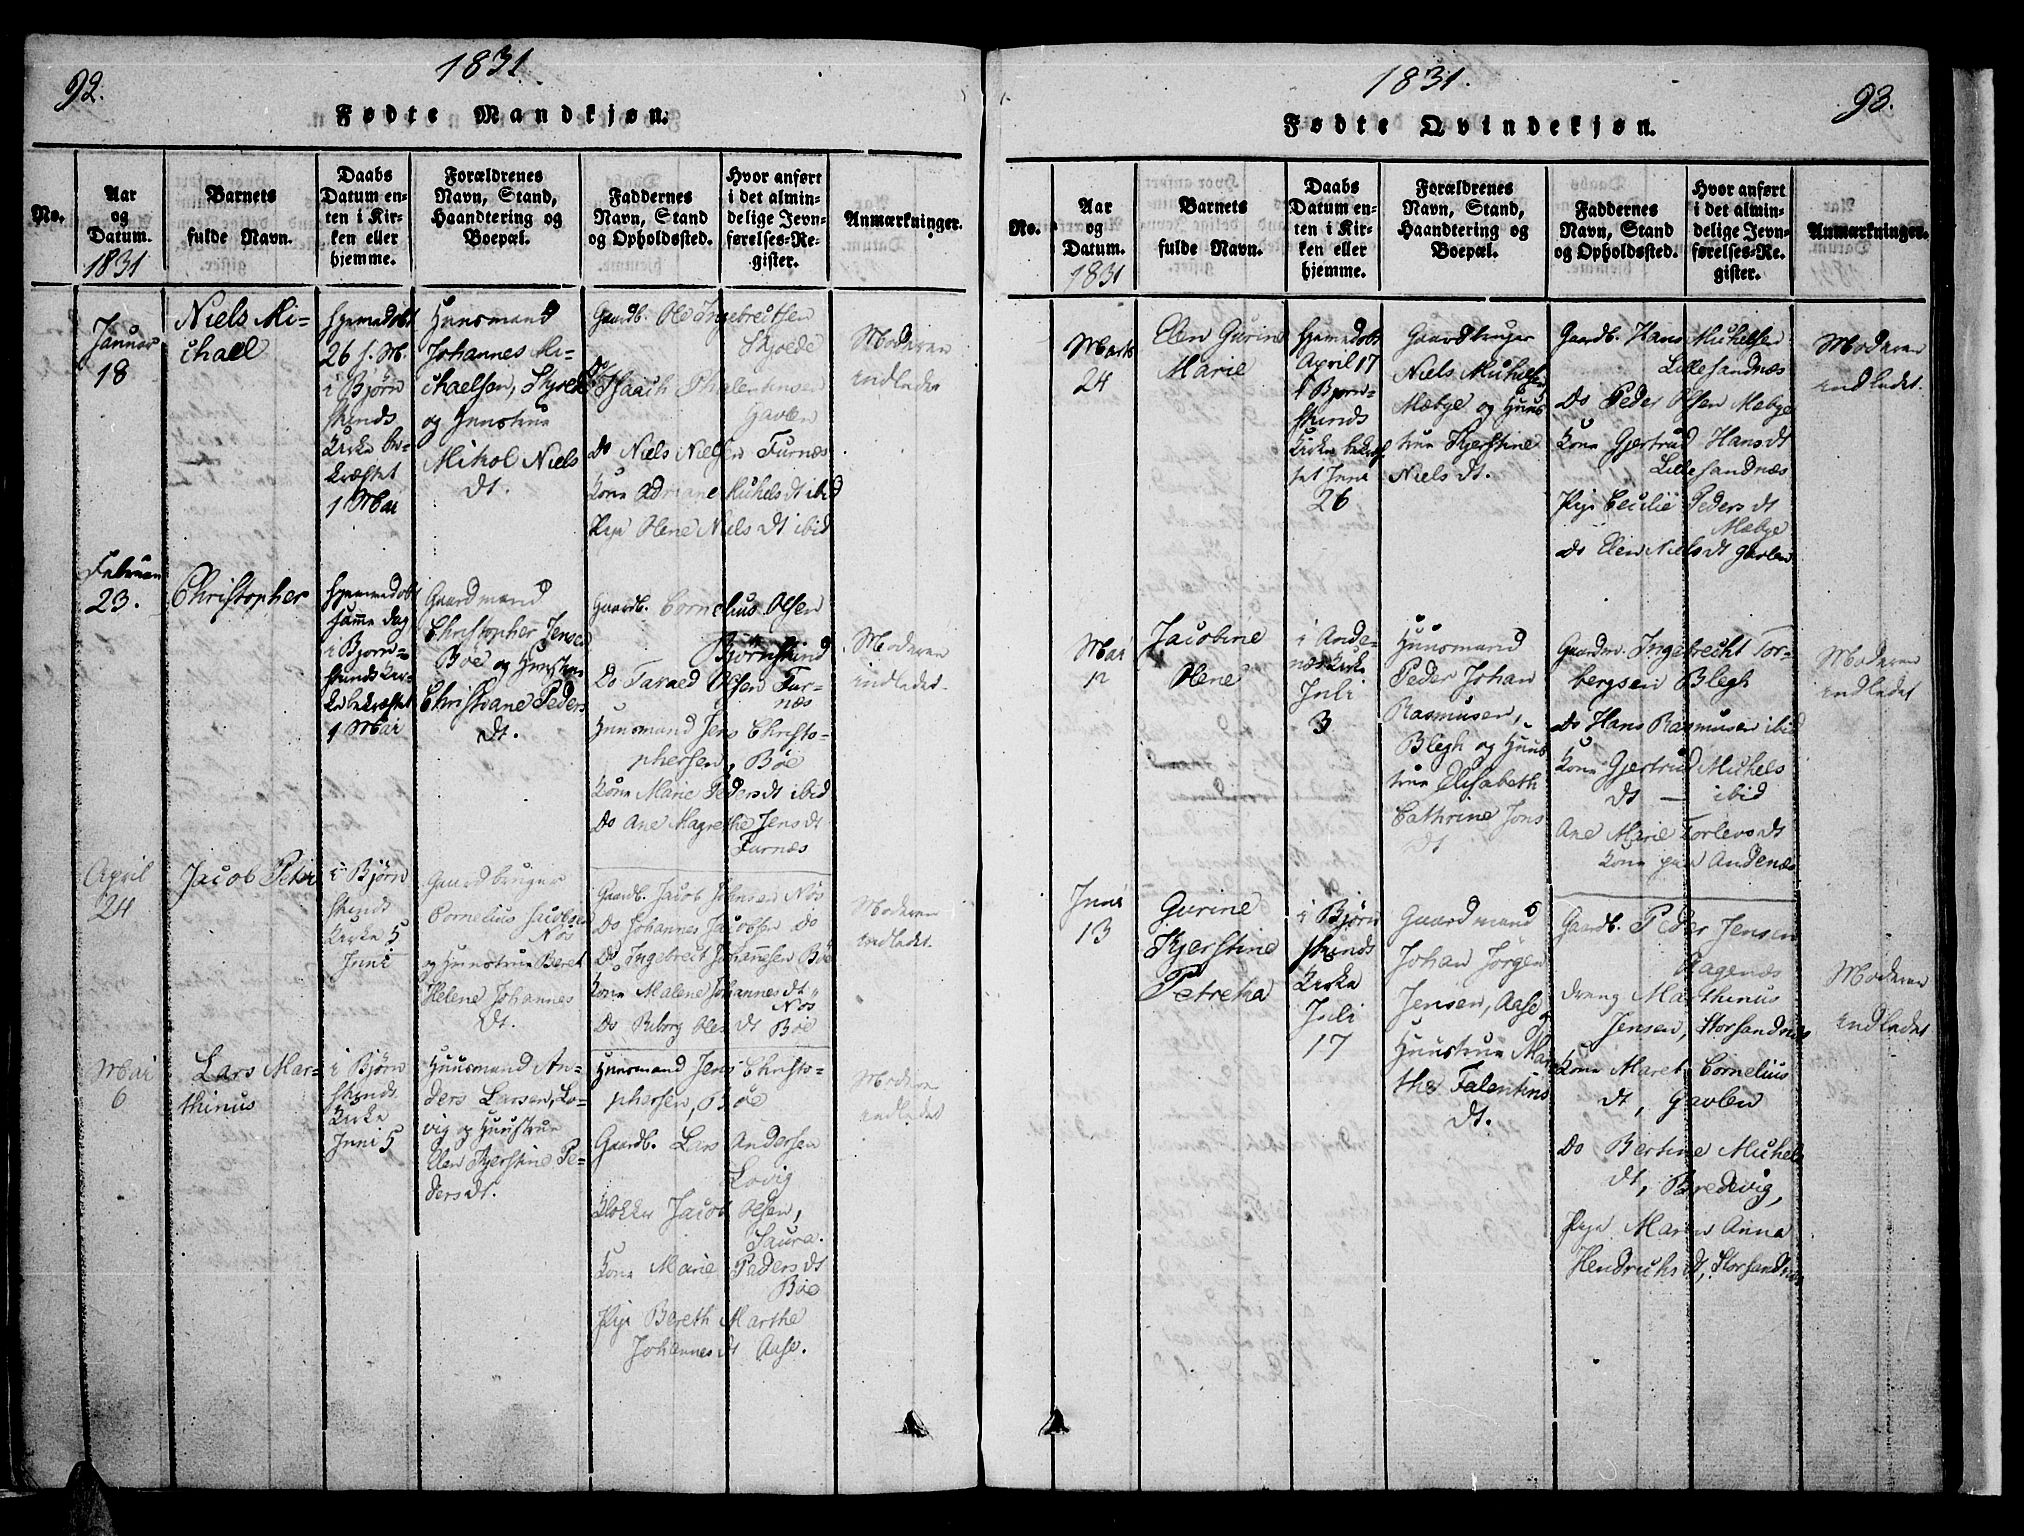 92.
1831.
Fødte Mandkjøn.
No.
Aar
og
Datum.
1831
Barnets
fulde Navn.
Daabs
Datum en-
ten i Kir-
ken eller
hjemme.
Forældrenes
Navn, Stand,
Haandtering og
Boepæl.
Faddernes
Navn, Stand
og Opholdssted.
Hvor anført
i det almin-
delige Jevn-
førelses-Re-
gister.
Anmærkninger.
Januar
18
Niels Mi-
chael
Hjemedøbt
26 s. M.
i Bjørn
skinds
Kirke be-
kræftet
1 Mai
Huusmand
Johannes Mi-
chaelsen, Skjolde
og Huustrue
Mikol Niels
dt.
Gaardb. Ole Ingebretsen
Skjolde
Do Isaach Phalentinsen
Gavlen
Do Niels Nielsen Furnæs
Kone Adriane Michels dt ibid
Pige Olene Niels dt ibid
Moderen
indledet
Februar
23.
Christopher
Hjemmedøbt
samme dag
i Bjørn-
skinds Kir-
ke bekræftet
1 Mai
Gaardmand
Christopher Jensen
Böe og Huustrue
Christiane Peders
dt.
Gaardb. Cornelius Olsen
Björnskind
Do Taraed Olsen Fur-
næs
Huusmand Jens Christo-
phersen, Böe
Kone Marie Peders dt ibid
Do Ane Magrethe Jens dt
Furnæs
Moderen
indledet.
April
24
Jacob Peter
i Bjørn
skinds
Kirke 5
Juni
Gaardbruger
Cornelius Jacobsen
Nös
og Huustrue Beret
Helene Johannes
dt.
Gaardb. Jacob Johnsen Nös
Do Johannes Jacobsen do
Do Ingebrect Johannesen Böe
Kone Malene Johannes dt
Nös
Do Riborg Ols dt Böe
Moderen
indledet.
Mai
6
Lars Mar-
thinus
i Bjørn
skinds
Kirke
Juni 5
Huusmand An-
ders Larsen, Lo-
vig og Huustrue
Elen Kjerstine Pe-
ders dt.
Huusmand Jens Christo-
phersen, Böe
Gaardb. Lars Andersen
Lovig
Klokker Jacob Olsen,
Saura.
Kone Marie Peders dt
Böe
Pige Bereth Marthe
Johannes dt Aase.
Moderen
indledet
93.
1831.
Fødte Qvindekjøn.
No.
Aar
og
Datum.
1831
Barnets
fulde Navn.
Daabs
Datum en-
ten i Kir-
ken eller
hjemme.
Forældrenes
Navn, Stand,
Haandtering og
Boepæl.
Faddernes
Navn, Stand
og Opholdssted.
Hvor anført
i det almin-
delige Jevn-
førelses-Re-
gister.
Anmærkninger.
Marts
24
Elen Gurine
Marie
Hjemedøbt
April 17
i Bjørn-
skinds
Kirke bekræf
tet Juni
26
Gaardbruger
Niels Michelsen
Mæbye og Huus
true Kjerstine
Niels dt.
Gaardb. Hans Michelsen
Lillesandnæs
Do Peder Olsen Mæbye
Kone Gjertrud Hans dt
Lillesandnæs
Pige Cecilie Peders dt
Mæbye
do Elen Niels dt Gavlen
Moderen
indledet.
Mai
12
Jacobine
Olene
i Ande-
næs Kirke
Juli
3
Huusmand
Peder Johan
Rasmusen,
Blegh og Huus
true Elisabeth
Cathrine Jons
dt
Gaardm. Ingebrecht Tor-
bergsen Blegh
Do Hans Rasmusen ibid
Kone Gjertrud Michels
dt — ibid
Ane Marie Torlevs dt
Kone paa Andenæs
Moderen
indledet
Juni
13
Gurine
Kjerstine
Petrekа
i Bjørn
skinds
Kirke
Juli
17
Gaardmand
Johan Jörgen
Jensen, Aase,
Huustrue Mar
the Falentins
dt.
Gaardb. Peder Jensen
Aagenæs
dreng Marthinus
Jensen, Storsandnæs
Kone Maret Cornelius
dt, Gavlen
Do Bertine Michels
dt, Bredevig,
Pige Maren Anna
Hendrichs dt, Storsandnæs
Moderen
indledet